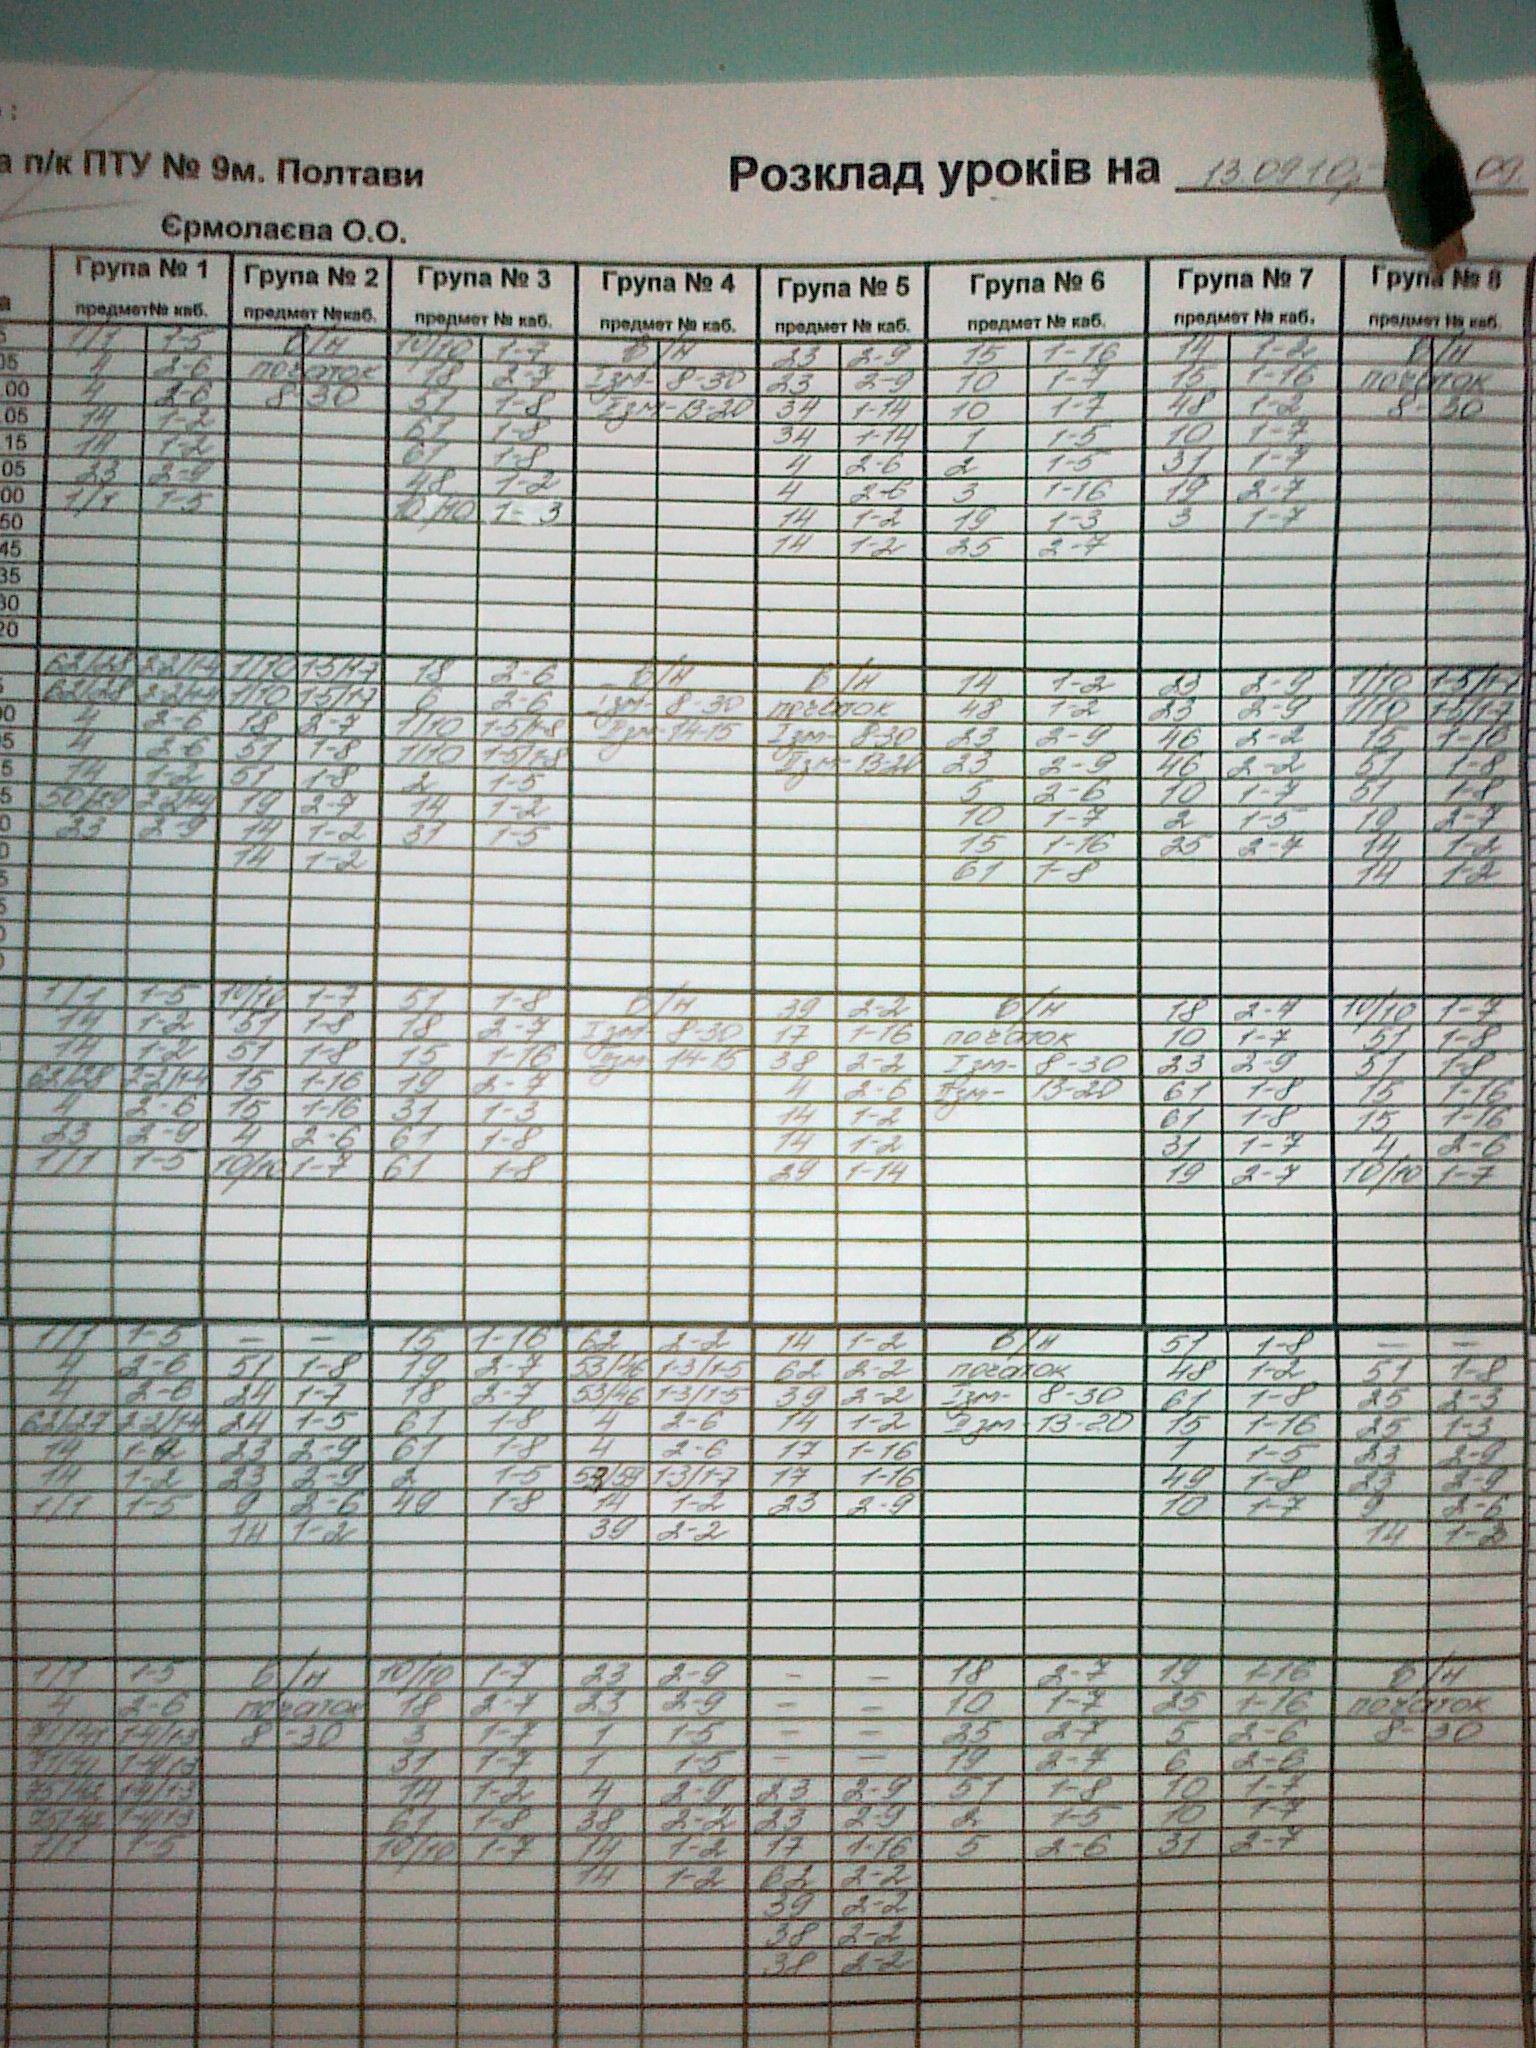 :
а п/к ПТУ № 9м. Полтави Розклад уроків на 13.0910р- 09.
Єрмолаєва О.О.
Група № 1 Група № 2 Група № 3 Група № 4 Група № 5 Група № 6 Група № 7 Група № 8
предмет № каб. предмет № каб. предмет № каб. предмет № каб. предмет № каб. предмет № каб. предмет № каб. предмет № каб.
1/1 1-5 б/н 10/10 1-7 б/н 23 2-9 15 1-16 14 1-2 б/н
4 2-6 початок 18 2-7 Ізм- 8-30 23 2-9 10 1-7 15 1-16 початок
4 2-6 8-30 51 1-8 ІІзм-13-20 34 1-14 10 1-7 48 1-2 8-30
14 1-2 61 1-8 34 1-14 1 1-5 10 1-7
14 1-2 61 1-8 4 2-6 2 1-5 31 1-7
23 2-9 48 1-2 4 2-6 3 1-16 19 2-7
1/1 1-5 10/10 1-3 14 1-2 19 1-3 3 1-7
14 1-2 25 2-7
62/28 2-2/1-4 1/10 1-5/1-7 18 2-6 б/н б/н 14 1-2 23 2-9 1/10 1-5/1-7
62/28 2-2/1-4 1/10 1-5/1-7 6 2-6 Ізм- 8-30 початок 48 1-2 23 2-9 1/10 1-5/1-7
4 2-6 18 2-7 1/10 1-5/1-8 ІІзм-14-15 Ізм- 8-30 23 2-9 46 2-2 15 1-16
4 2-6 51 1-8 1/10 1-5/1-8 ІІзм-13-20 23 2-9 46 2-2 51 1-8
14 1-2 51 1-8 2 1-5 5 2-6 10 1-7 51 1-8
2-2/1-4 19 2-7 14 1-2 10 1-7 2 1-5 19 2-7
23 2-9 14 1-2 31 1-5 15 1-16 25 2-7 14 1-2
14 1-2 61 1-8 14 1-2
1/1 1-5 10/10 1-7 51 1-8 б/н 39 2-2 б/н 18 2-7 10/10 1-7
14 1-2 51 1-8 18 2-7 Ізм- 8-30 17 1-16 початок 10 1-7 51 1-8
14 1-2 51 1-8 15 1-16 ІІзм- 14-15 38 2-2 Ізм- 8-30 23 2-9 51 1-8
62/28 2-2/1-4 15 1-16 19 2-7 4 2-6 ІІзм- 13-20 61 1-8 15 1-16
4 2-6 15 1-16 31 1-3 14 1-2 61 1-8 15 1-16
23 2-9 4 2-6 61 1-8 14 1-2 31 1-7 4 2-6
1/1 1-5 10/10 1-7 61 1-8 29 1-14 19 2-7 10/10 1-7
1/1 1-5 – – 15 1-16 62 2-2 14 1-2 б/н 51 1-8 – –
4 2-6 51 1-8 19 2-7 53/46 1-3/1-5 62 2-2 початок 48 1-2 51 1-8
4 2-6 24 1-7 18 2-7 53/46 1-3/1-5 39 2-2 Ізм- 8-30 61 1-8 25 2-3
62/27 2-2/1-4 24 1-5 61 1-8 4 2-6 14 1-2 ІІзм- 13-20 15 1-16 25 1-3
14 1-2 23 2-9 61 1-8 4 2-6 17 1-16 1 1-5 23 2-9
14 1-2 23 2-9 2 1-5 1-3/1-7 17 1-16 49 1-8 23 2-9
1/1 1-5 9 2-6 49 1-8 14 1-2 23 2-9 10 1-7 9 2-6
14 1-2 39 2-2 14 1-2
1/1 1-5 б/н 10/10 1-7 23 2-9 – – 18 2-7 19 1-16 б/н
4 2-6 початок 18 2-7 23 2-9 – – 10 1-7 25 1-16 початок
71/41 1-4/1-3 8-30 3 1-7 1 1-5 – – 25 2-7 5 2-6 8-30
71/41 1-4/1-3 31 1-7 1 1-5 – – 19 2-7 6 2-6
1-4/1-3 14 1-2 4 2-9 23 2-9 51 1-8 10 1-7
1-4/1-3 61 1-8 38 2-2 23 2-9 2 1-5 10 1-7
1/1 1-5 10/10 1-7 14 1-2 17 1-16 5 2-6 31 2-7
14 1-2 62 2-2
39 2-2
38 2-2
38 2-2